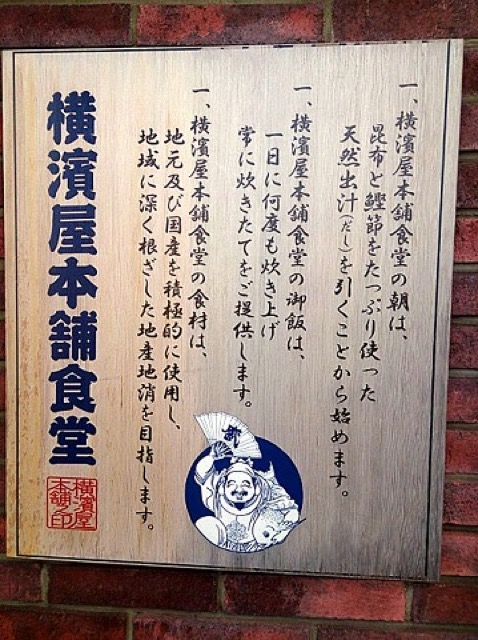 一、横濱屋本舗食堂の朝は、
昆布と鰹節をたっぷり使った
天然出汁(だし)を引くことから始めます。
一、横濱屋本舗食堂の御飯は、
一日に何度も炊き上げ
常に炊きたてをご提供します。
一、横濱屋本舗食堂の食材は、
地元及び国産を積極的に使用し、
地域に深く根ざした地産地消を目指します。
横濱屋本舗食堂
横濱屋
本舗之印